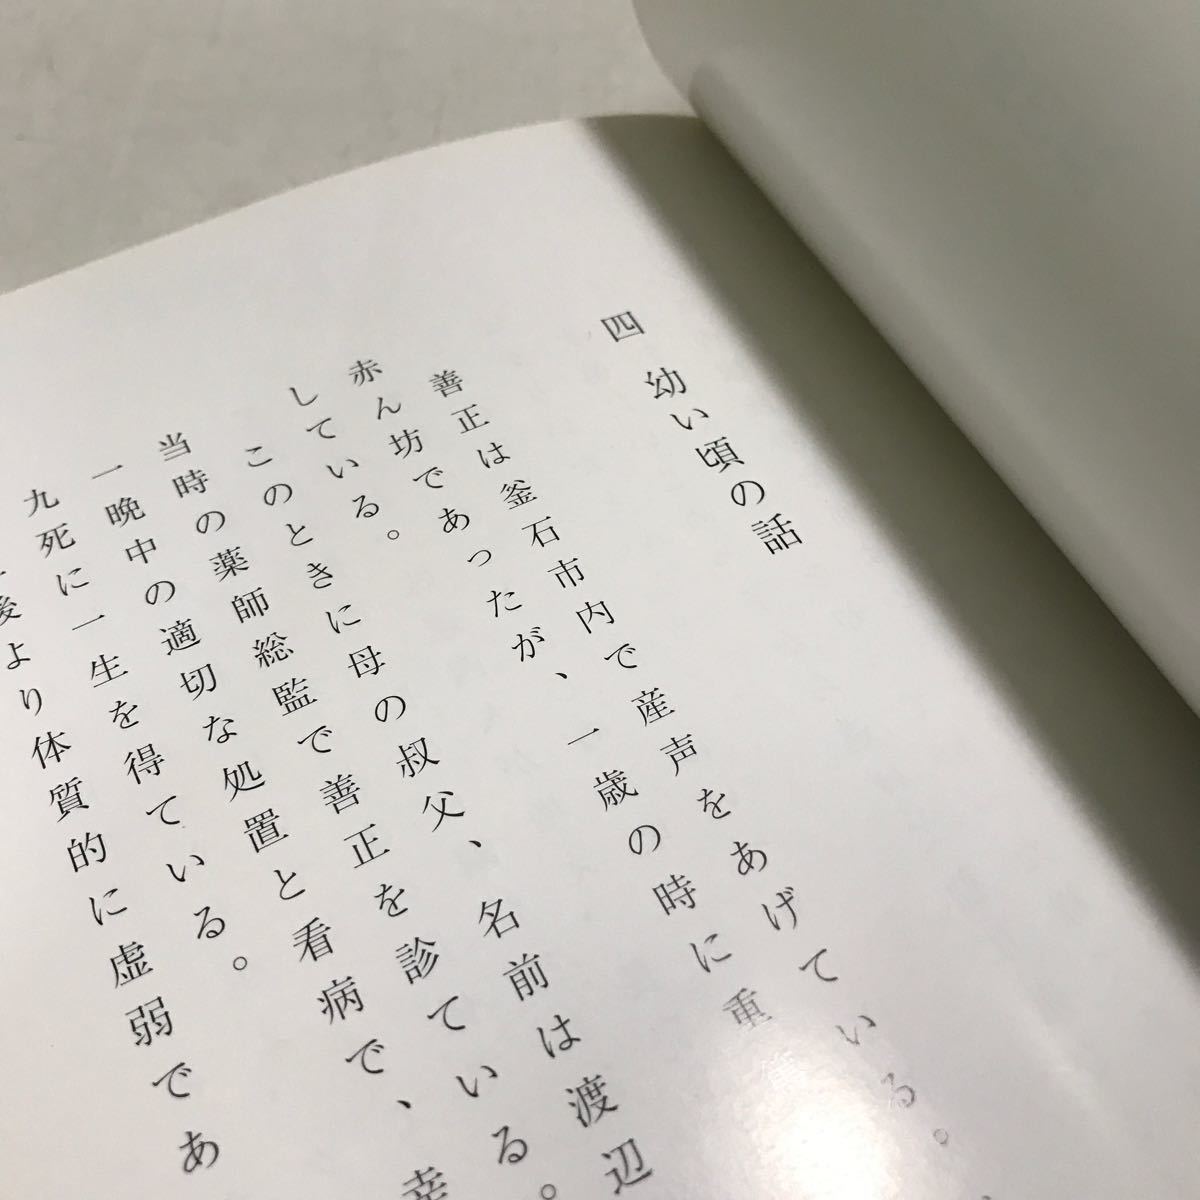 四 幼い頃の話
善正は釜石市内で産声をあげている。
赤ん坊であったが、一歳の時に重
している。
このときに母の叔父、名前は渡辺
当時の薬師総監で善正を診ている。
一晩中の適切な処置と看病で、幸
九死に一生を得ている。
後より体質的に虚弱であ